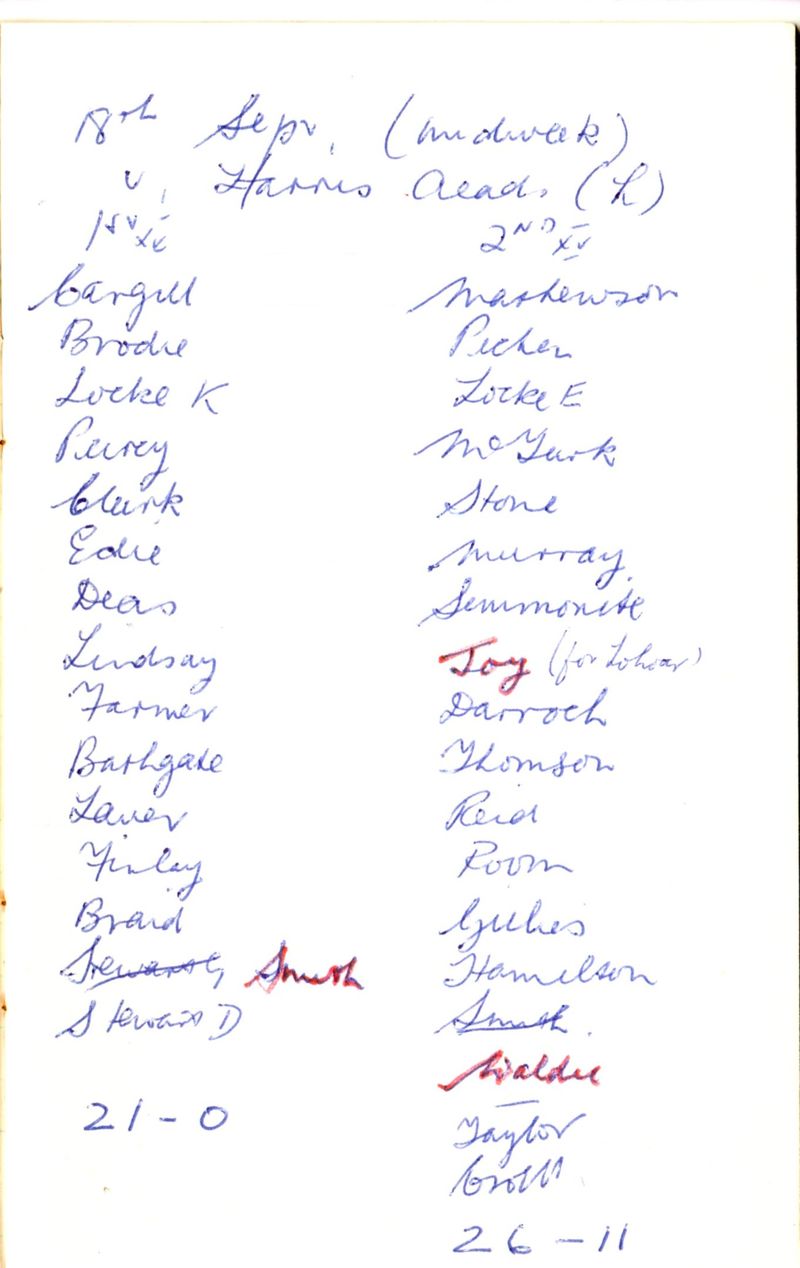 18th Sept. (midweek)
v. Harris Acad. (h)
1st XV
Cargill
Brodie
Locke K
Purey
Clark
Edie
Deas
Lindsay
Farmer
Bathgate
Laver
Finlay
Braid
Stewart, Smith
Stewart D
21-0
2ND XV
Mathewson
Locke E
McGurk
Stone
Murray
Simmonite
Joy (for
Darroch
Thomson
Reid
Room
Gillies
Hamilson
Smith.
Waldie
Taylor
Croll
26-11